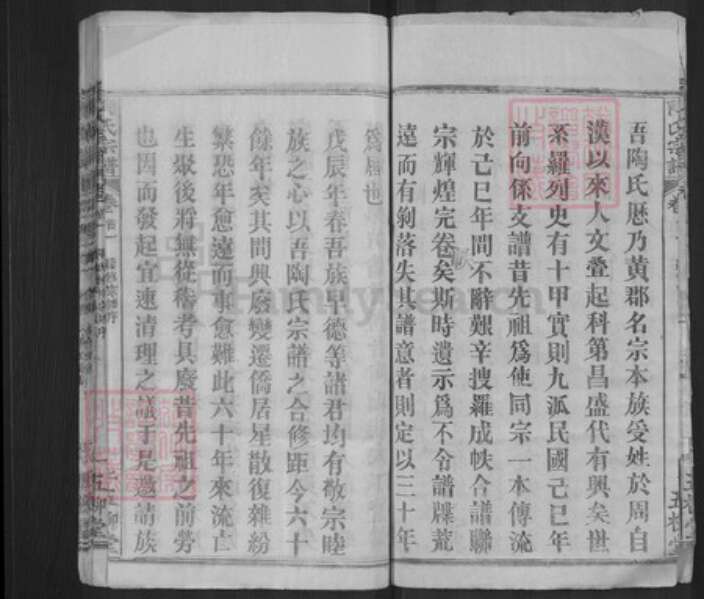 吾陶氏歷乃黃郡名宗本族受姓於周自
漢以來人文叠起科第昌盛代有興矣世
系羅列史有十甲實則九派民國己巳年
前向係支譜昔先祖為使同宗一本傳流
於己巳年間不辭艱辛搜羅成帙合譜聯
宗輝煌完卷矣斯時遺示為不令譜牒荒
遠而有剝落失其譜意者則定以三十年
為屆也
戊辰年春吾族早德等諸君均有敬宗睦
族之心以吾陶氏宗譜之合修距今六十
餘年矣其間興廢變遷僑居星散復雜紛
繁恐年愈遠而事愈難此六十年來流亡
生聚後將無從稽考具廢昔先祖之前勞
也因而發起宜速清理之議于是邀請族
氏宗譜
卷首
五柳堂